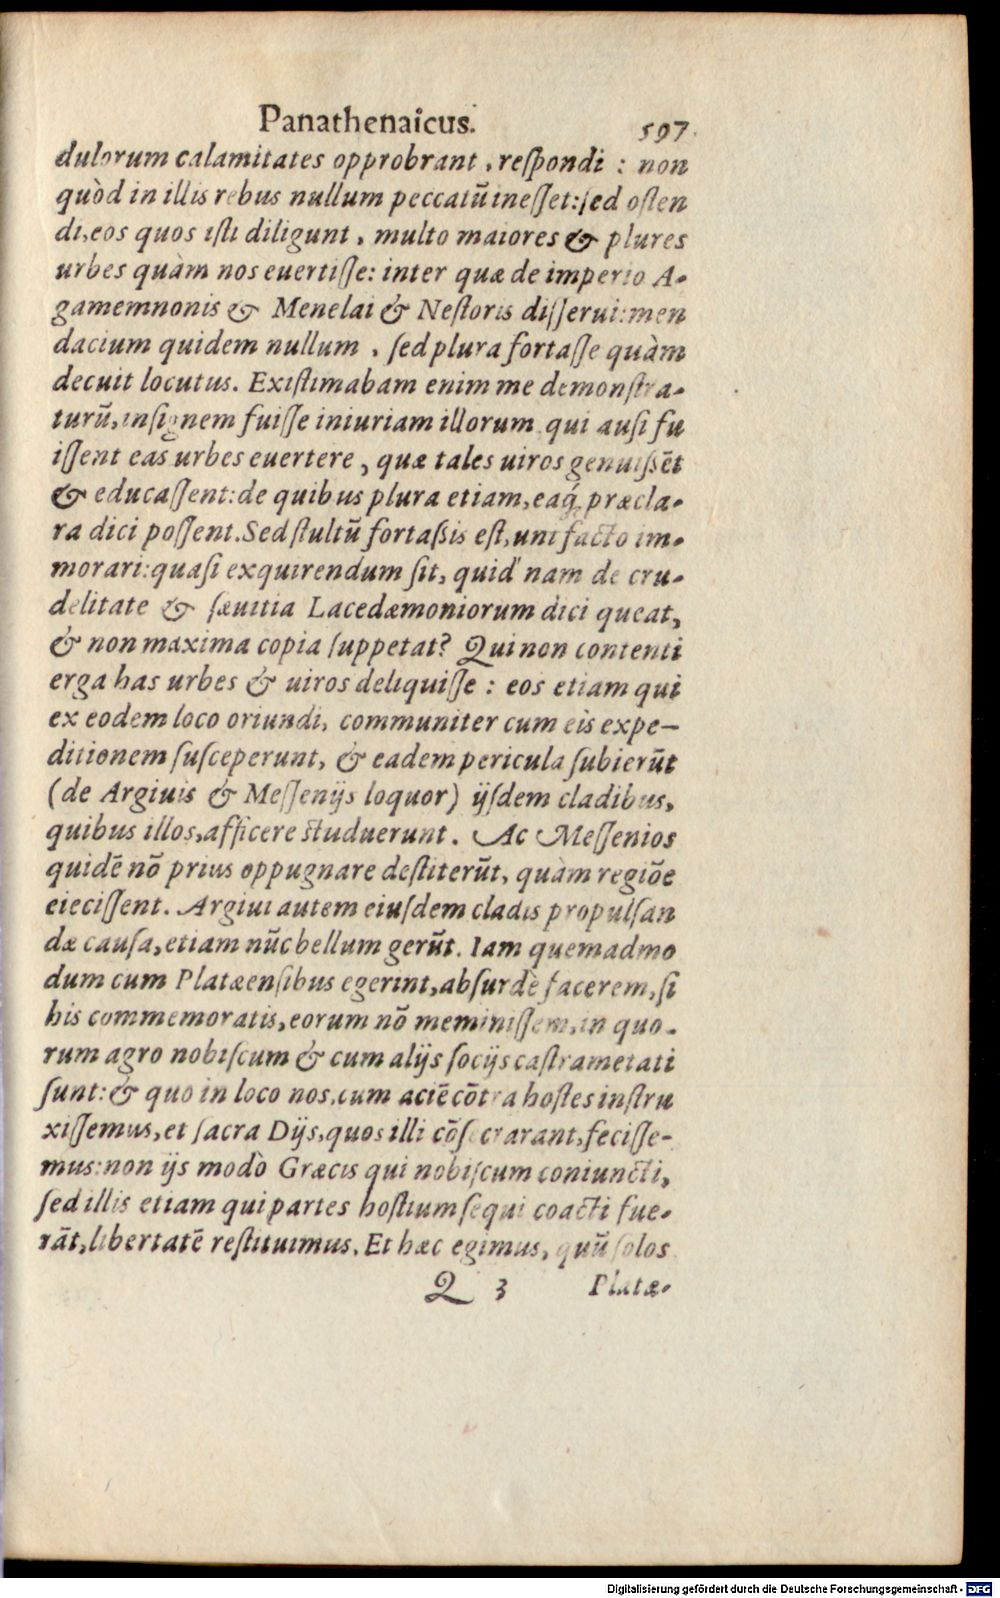 Panathenaicus. 597
dulorum calamitates opprobrant, reſpondi: non
quòd in illis rebus nullum peccatũ ineſſet: ſed oſten
di, eos quos iſti diligunt, multo maiores & plures
urbes quàm nos euertiſſe: inter quæ de imperio A-
gamemnonis & Menelai & Neſtoris diſſerui: men
dacium quidem nullum, ſed plura fortaſſe quàm
decuit locutus. Exiſtimabam enim me demonſtra-
turũ, inſignem fuiſſe iniuriam illorum qui auſi fu
iſſent eas urbes euertere, quæ tales uiros genuiſſẽt
& educaſſent: de quibus plura etiam, eaq́; præcla-
ra dici poſſent. Sed ſtultũ fortaſsis eſt, uni facto im-
morari: quaſi exquirendum ſit, quid nam de cru-
delitate & ſæuitia Lacedæmoniorum dici queat,
& non maxima copia ſuppetat? Qui non contenti
erga has urbes & uiros deliquiſſe: eos etiam qui
ex eodem loco oriundi, communiter cum eis expe-
ditionem ſuſceperunt, & eadem pericula ſubierũt
(de Argiuis & Meſſenijs loquor) ijſdem cladibus,
quibus illos, afficere ſtuduerunt. Ac Meſſenios
quidẽ nõ prius oppugnare deſtiterũt, quàm regiõe
eieciſſent. Argiui autem eiuſdem cladis propulſan
dæ cauſa, etiam nũc bellum gerũt. Iam quemadmo
dum cum Platæenſibus egerint, abſurdè facerem, ſi
his commemoratis, eorum nõ meminiſſem, in quo-
rum agro nobiſcum & cum alijs ſocijs caſtrametati
ſunt: & quo in loco nos, cum aciẽ cõtra hoſtes inſtru
xiſſemus, et ſacra Dijs, quos illi cõſecrarant, feciſſe-
mus: non ijs modò Græcis qui nobiſcum coniuncti,
ſed illis etiam qui partes hoſtium ſequi coacti fue-
rãt, libertatẽ reſtituimus. Et hæc egimus, quũ ſolos
Q 3 Platæ-
Digitalisierung gefördert durch die Deutsche Forschungsgemeinschaft - DFG